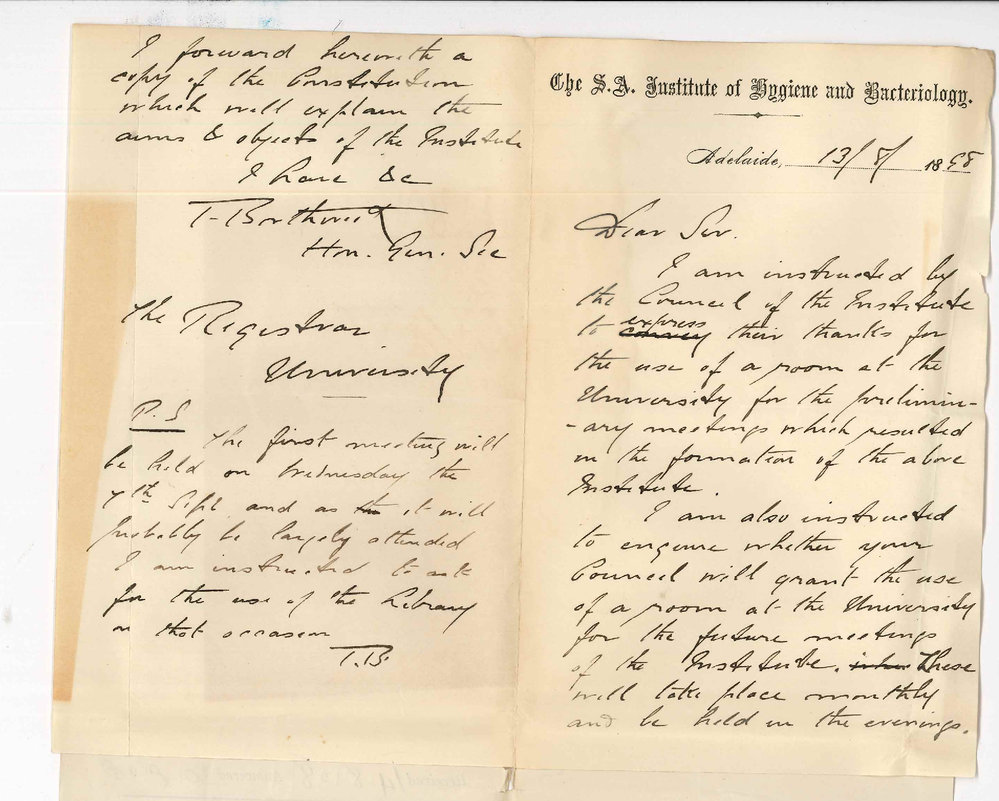 The S.A. Institute of Hygiene and Bacteriology.
Adelaide, 13/8/ 1898
Dear Sir.
I am instructed by
the Council of the Institute
to convey express their thanks for
the use of a room at the
University for the prelimin-
-ary meetings which resulted
in the formation of the above
Institute.
I am also instructed
to enquire whether your
Council will grant the use
of a room at the University
for the future meetings
of the Institute. These
will take place monthly
and be held in the evenings.
I forward herewith a
copy of the Constitution
which will explain the
aims & objects of the Institute
I have &c
T. Borthwick
Hon. Gen. Sec
The Registrar
University
P.S
The first meeting will
be held on Wednesday the
7th Sept. and as it will
probably be largely attended
I am instructed to ask
for the use of the Library
on that occasion
T.B.